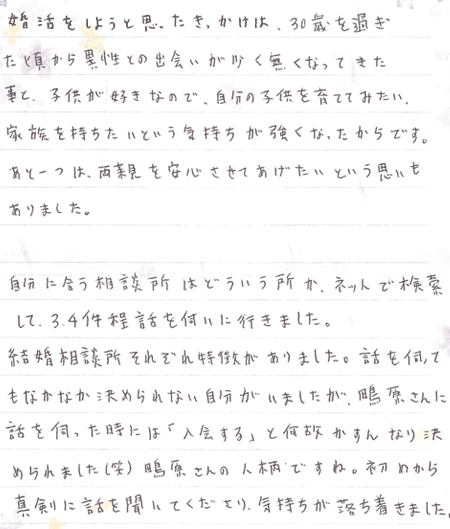 婚活をしようと思ったきっかけは、30歳を過ぎ
た頃から異性との出会いが少く無くなってきた
事と、子供が好きなので、自分の子供を育ててみたい、
家族を持ちたいという気持ちが強くなったからです。
あと一つは、両親を安心させてあげたいという思いも
ありました。
自分に合う相談所はどういう所か、ネットで検索
して、3.4件程話を伺いに行きました。
結婚相談所それぞれ特徴がありました。話を伺って
もなかなか決められない自分がいましたが、鴫原さんに
話を伺った時には「入会する」と何故かすんなり決
められました(笑)鴫原さんの人柄ですね。初めから
真剣に話を聞いてくださり、気持ちが落ち着きました。